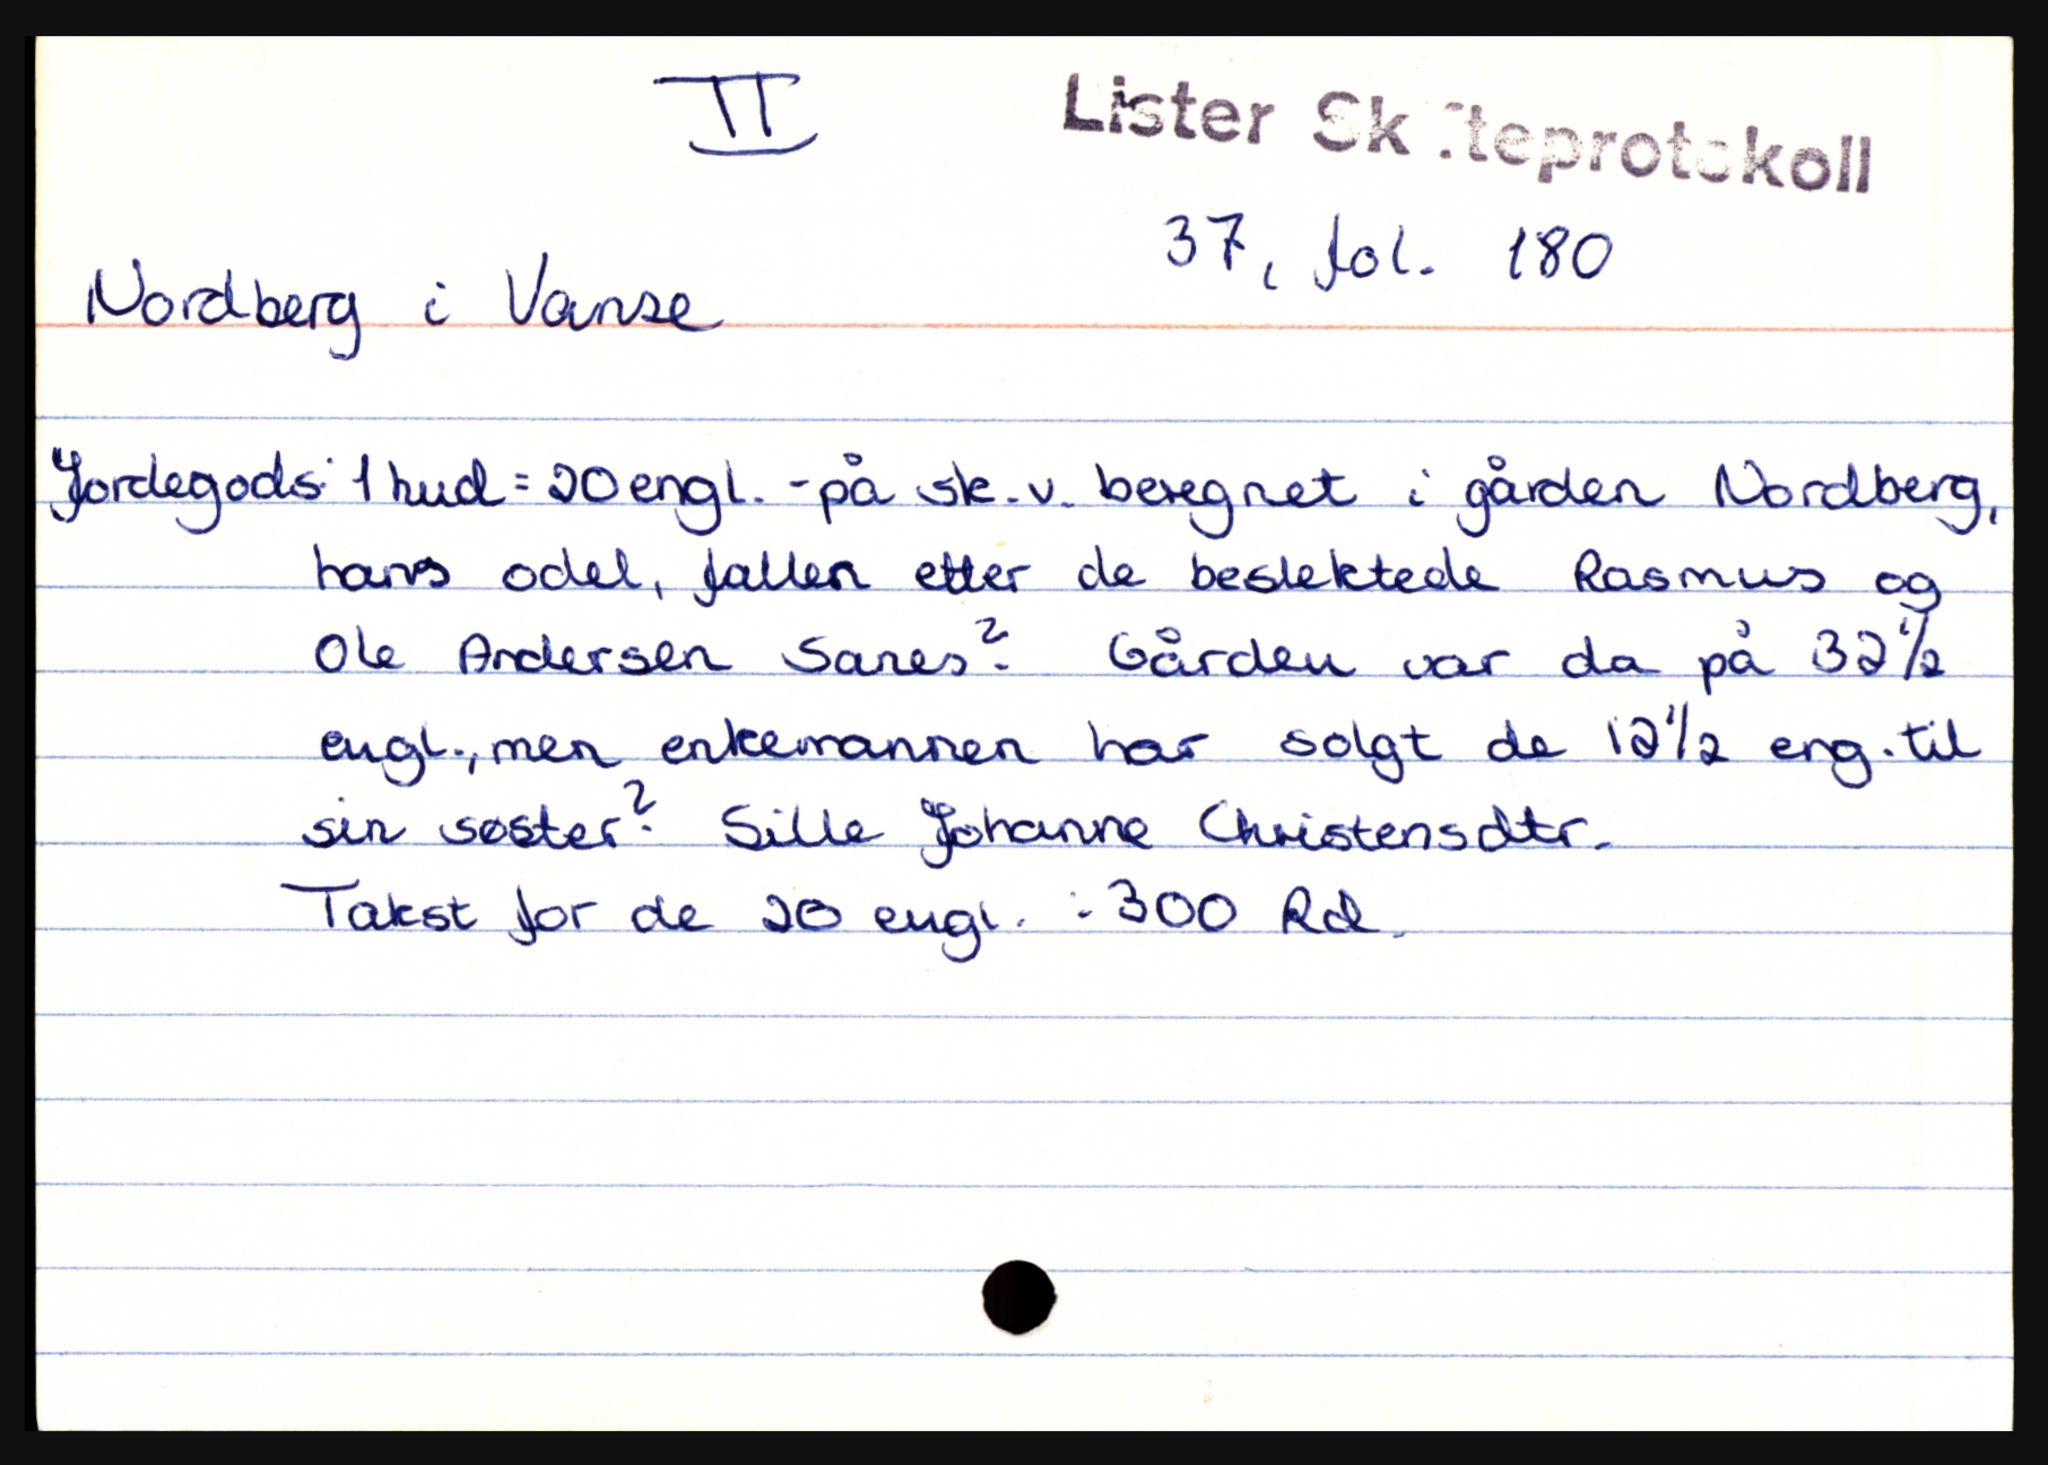 II
Lister Skifteprotokoll
37, fol. 180
Nordberg i Vanse
Jordegods: 1 hud = 20 engl. - på sk.v. beregnet i gården Nordberg,
hans odel, fallen etter de beslektede Rasmus og
Ole Andersen Sanes? Gården var da på 32 1/2
engl., men enkemannen har solgt de 12 1/2 eng. til
sin søster? Sille Johanne Christensdtr.
Takst for de 20 engl. : 300 Rd.